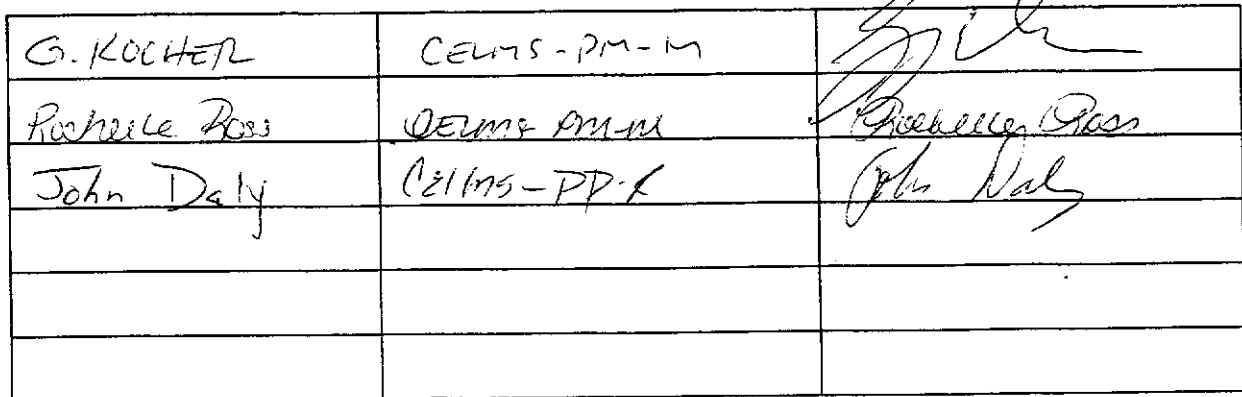 G. KOCHER CELMS-PM-M
Rochelle Ross CELMS-PM-M Rochelle Ross
John Daly CELMS-PP- John Daly